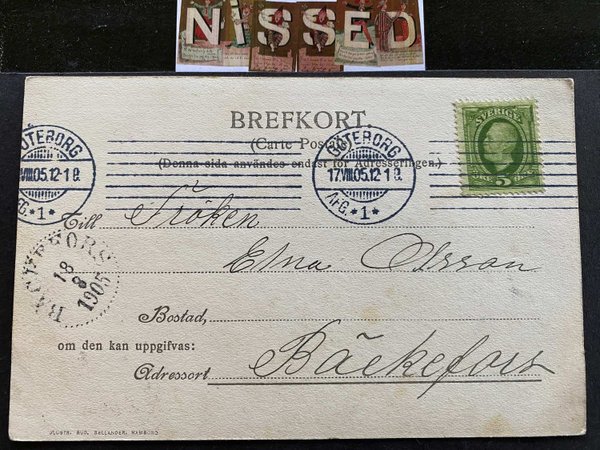 NISSED
BREFKORT.
(Carte Postale)
(Denna sida användes endast för Adresseringen.)
SVERIGE
5
GÖTEBORG
17VIII.05.12-1 E.
AFG.
*1*
GÖTEBORG
VIII.05.12-1 E.
*1*
Till Fröken
Elna Olsson
BÄCKEFORS
18
8
1905
Bostad,
om den kan uppgifvas:
Adressort Bäckefors